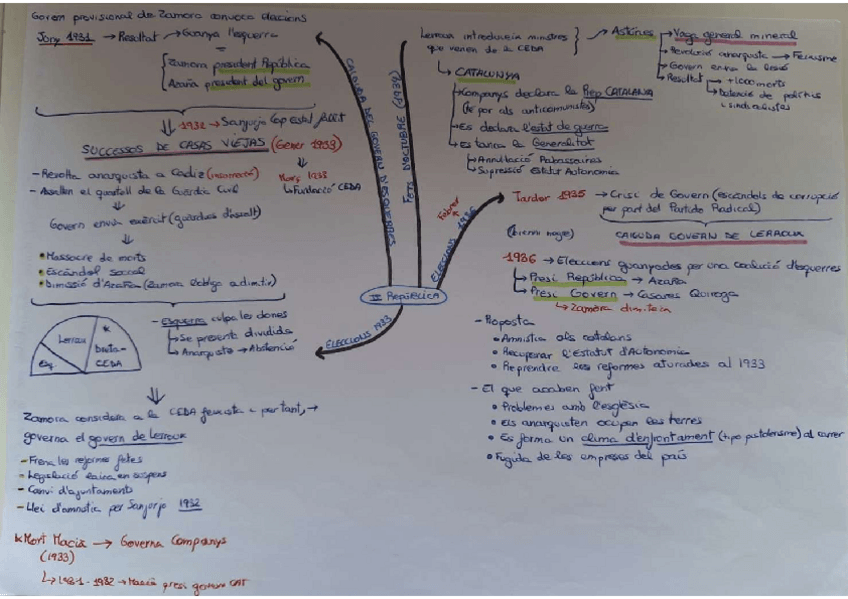 Govern provisional de Zamora convoca eleccions
Juny 1931 → Resultat → Guanya l'esquerra
Zamora president República
Azaña president del govern
1932 → Sanjurjo Cop Estat fallit
SUCCESSOS DE CASAS VIEJAS (Gener 1933)
Març 1933
↳ Fundació CEDA
- Revolta anarquista a Cadiz
- Assalten el quartell de la Guardia Civil
Govern envia exèrcit (guardies d'assalt)
• Massacre de morts
• Escàndol social
• Dimissió d'Azaña (Zamora l'obliga a dimitir)
Esq.
Lerroux
Dreta-
CEDA
- Esquerra culpa les dones
↳ Se presenta dividida
↳ Anarquista → Abstenció
Zamora considera a la CEDA feixista i per tant, →
governa el govern de Lerroux
- Frena les reformes fetes
- Legislació laica en suspens
- Canvi d'ajuntaments
- Llei d'amnistia per Sanjurjo 1932
* Mort Macià → Governa Companys
(1933)
↳ 1931-1932 → Macià presi govern CAT
II REPÚBLICA
CAIGUDA DEL GOVERN D'ESQUERRES
FETS D'OCTUBRE (1934)
ELECCIONS 1936
Febrer
ELECCIONS 1933
Lerroux introdueix ministres
que venen de la CEDA
→ Astúries
→ Vaga general mineral
→ Revolució anarquista → Feixisme
→ Govern entra la legió
→ Resultat → +1000 morts
↳ Detenció de polítics
↳ sindicalistes
↳ CATALUNYA
→ Companys declara la Rep CATALANA
(té por als anticomunistes)
→ Es declara l'estat de guerra
→ Es tanca la Generalitat
↳ Anul·lació Rabassaires
↳ Supressió Estatut Autonomia
Tardor 1935 → Crisi de Govern (escàndols de corrupció
per part del Partido Radical)
(bienni negre)
CAIGUDA GOVERN DE LERROUX
1936 → Eleccions guanyades per una coalició d'esquerres
↳ Presi República → Azaña
↳ Presi Govern → Casares Quiroga
↳ Zamora dimiteix
- Proposta
• Amnistia als catalans
• Recuperar l'Estatut d'Autonomia
• Reprendre les reformes aturades al 1933
- El que acaben fent
• Problemes amb l'església
• Els anarquisten ocupen les terres
• Es forma un clima d'enfrontament (tipo pistolerisme) al carrer
• Fugida de les empreses del país